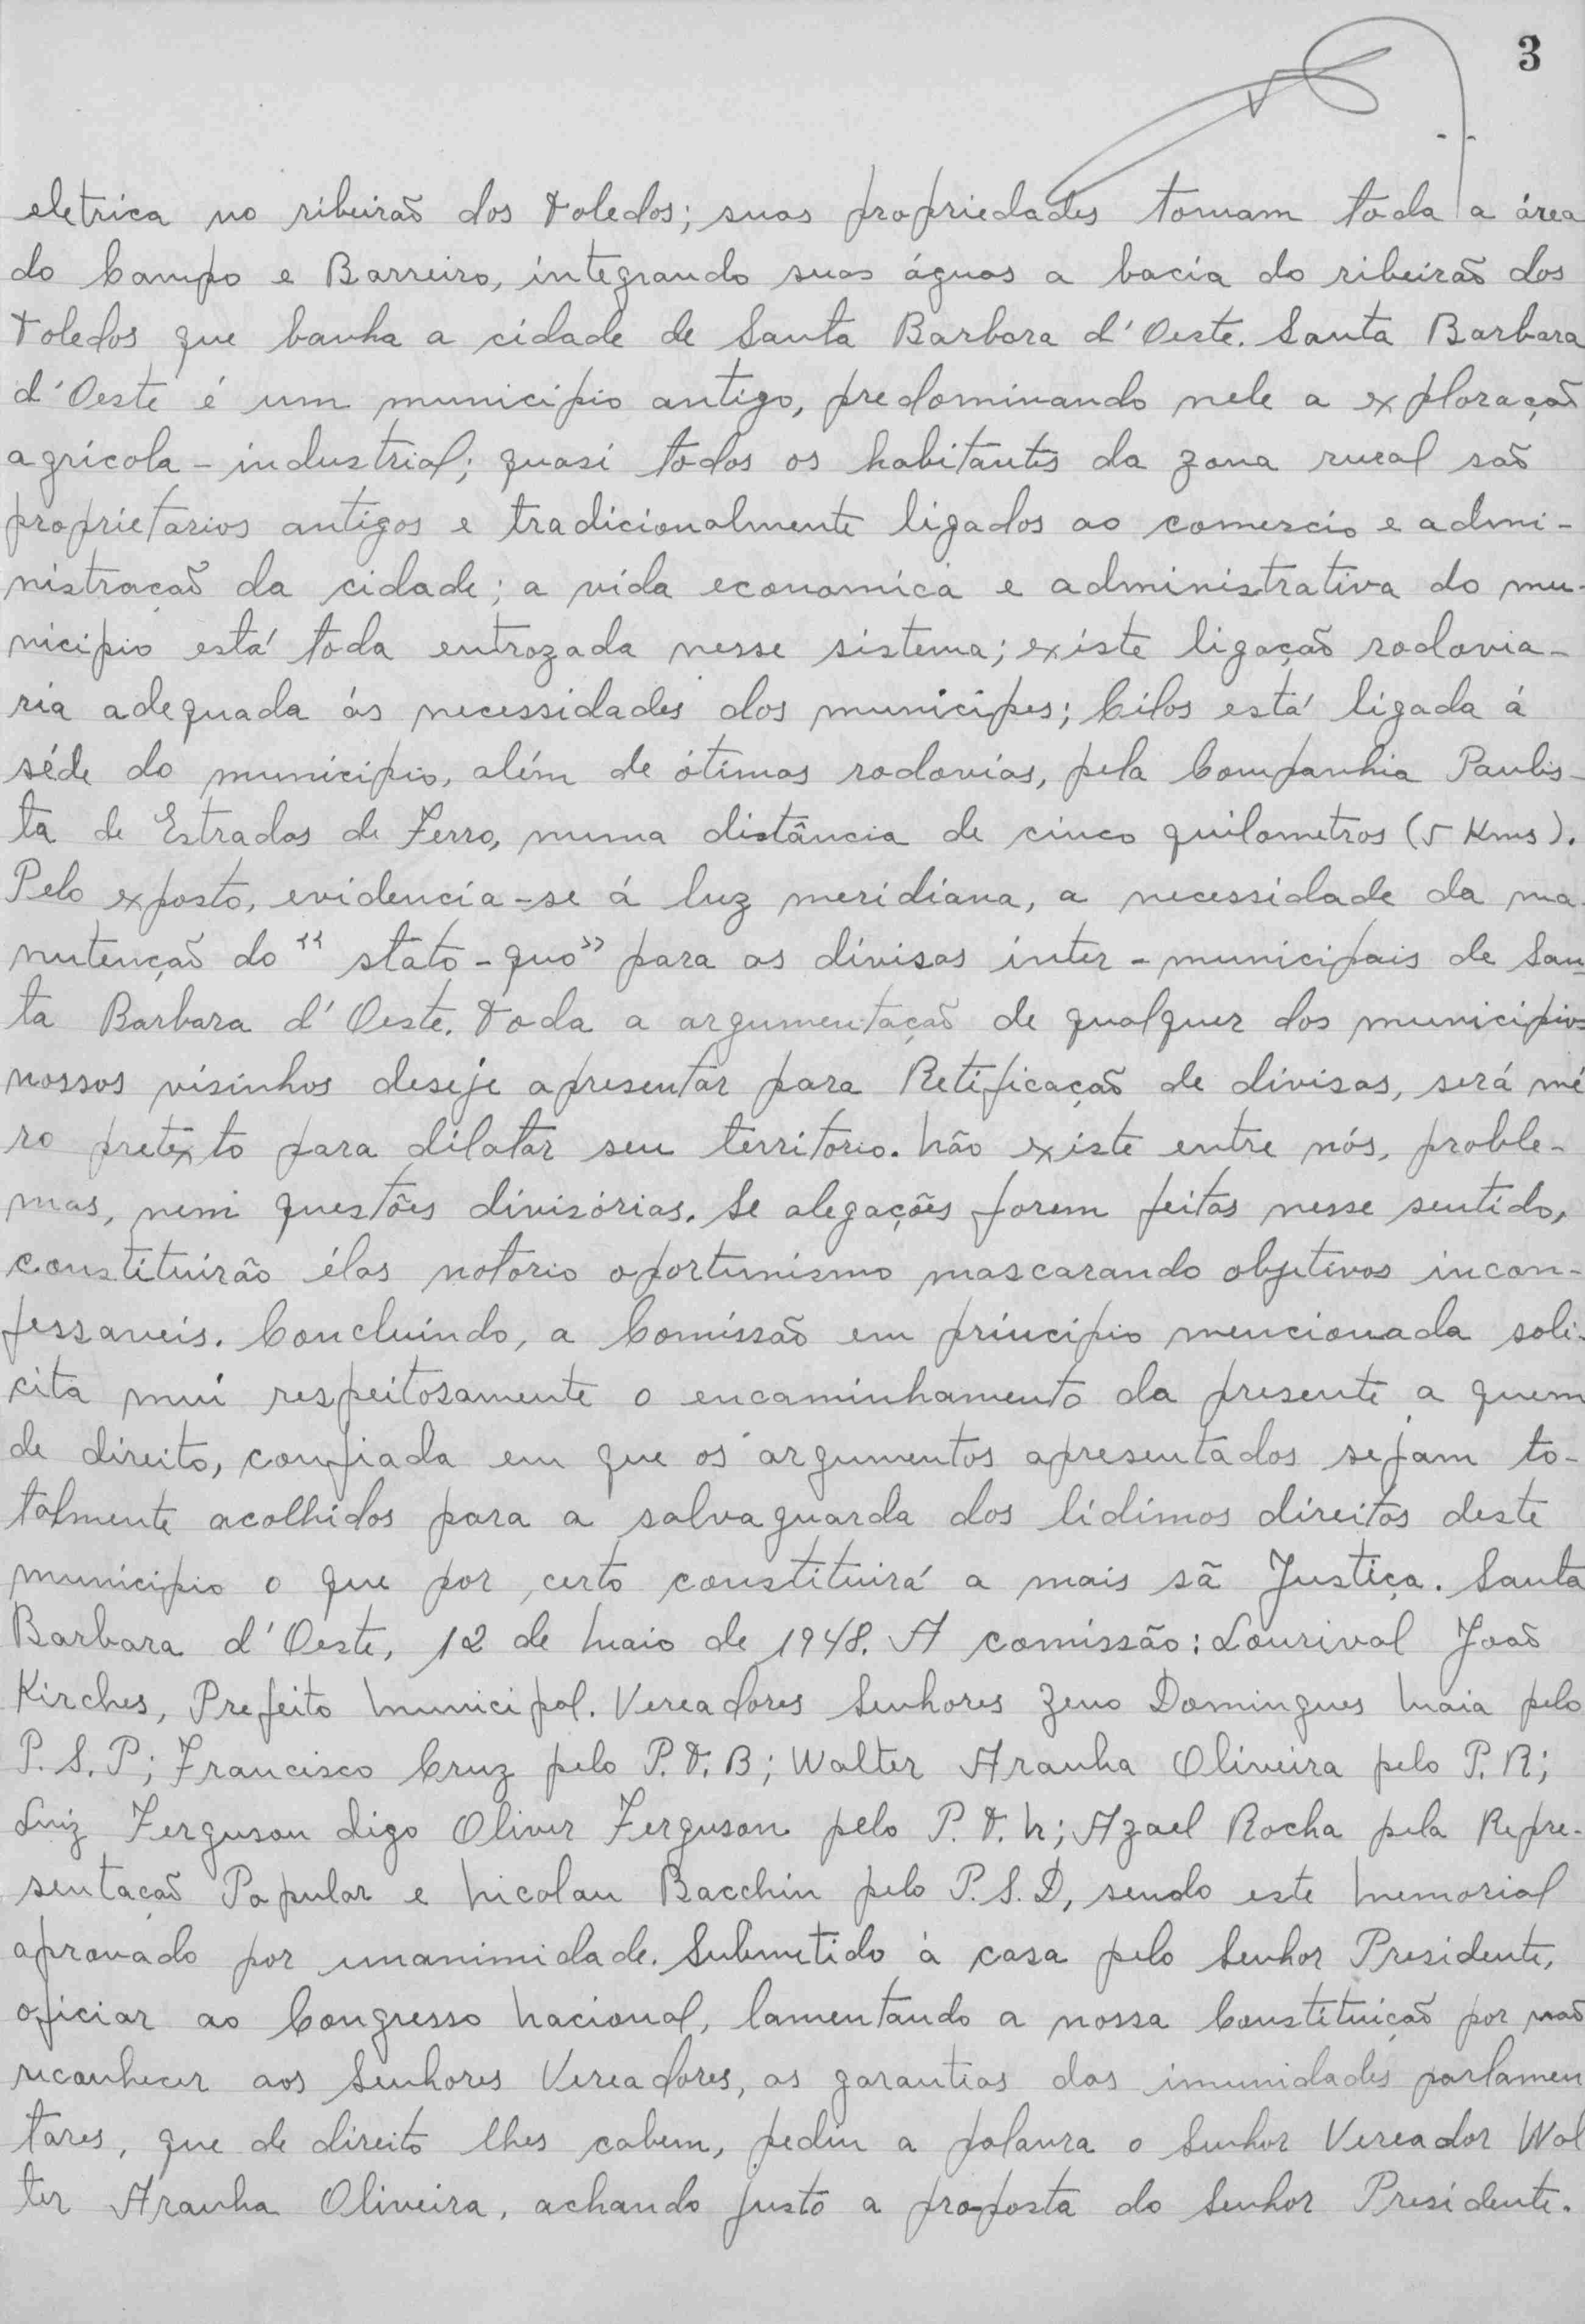 3
eletrica no ribeirão dos Toledos; suas propriedades tomam toda a área
do Campo e Barreiro, integrando suas águas a bacia do ribeirão dos
Toledos que banha a cidade de Santa Barbara d'Oeste. Santa Barbara
d'Oeste é um municipio antigo, predominando nele a exploração
agrícola - industrial; quasi todos os habitantes da zona rural são
proprietarios antigos e tradicionalmente ligados ao comercio e admi-
nistração da cidade; a vida economica e administrativa do mu-
nicipio está toda entrozada nesse sistema; existe ligação rodovia-
ria adequada ás necessidades dos municipes; Cilos está ligada á
séde do municipio, além de ótimas rodovias, pela Companhia Paulis-
ta de Estradas de Ferro, numa distância de cinco quilometros (5 Kms).
Pelo exposto, evidencia-se á luz meridiana, a necessidade da ma-
nutenção do "stato-quo" para as divisas inter-municipais de San-
ta Barbara d'Oeste. Toda a argumentação de qualquer dos municipios
nossos visinhos deseje apresentar para Retificação de divisas, será mé
ro pretexto para dilatar seu territorio. Não existe entre nós, proble-
mas, nem questões divisórias. Se alegações forem feitas nesse sentido,
constituirão élas notorio oportunismo mascarando objetivos incon-
fessaveis. Concluindo, a Comissão em principio mencionada soli-
cita mui respeitosamente o encaminhamento da presente a quem
de direito, confiada em que os argumentos apresentados sejam to-
talmente acolhidos para a salvaguarda dos lidimos direitos deste
municipio o que por certo constituirá a mais sã Justiça. Santa
Barbara d'Oeste, 12 de Maio de 1948. A comissão: Lourival João
Kirches, Prefeito Municipal. Vereadores Senhores Zeno Domingues Maia pelo
P. S. P; Francisco Cruz pelo P. T. B; Walter Aranha Oliveira pelo P. R;
Luiz Ferguson digo Oliver Ferguson pelo P. T. N; Azael Rocha pela Repre-
sentação Popular e Nicolau Bacchin pelo P. S. D, sendo este Memorial
aprovado por unanimidade. Submetido à casa pelo Senhor Presidente,
oficiar ao Congresso Nacional, lamentando a nossa Constituição por não
reconhecer aos Senhores Vereadores, as garantias das imunidades parlamen
tares, que de direito lhes cabem, pediu a palavra o Senhor Vereador Wal
ter Aranha Oliveira, achando justo a proposta do Senhor Presidente.